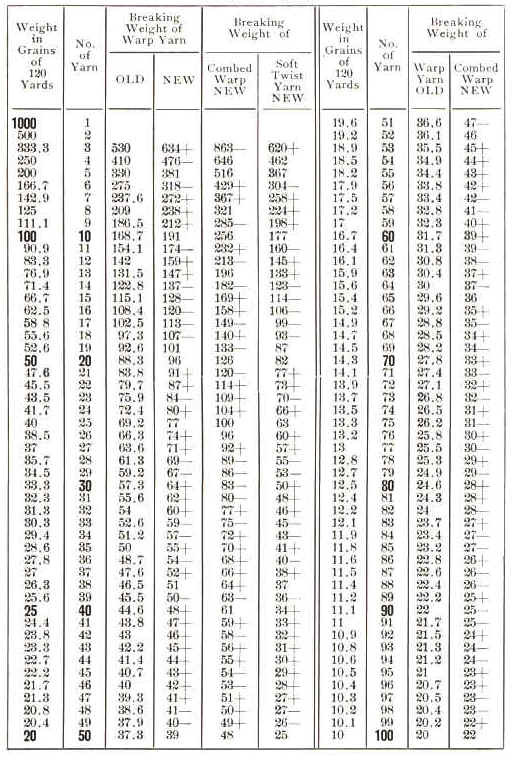 Weight in Grains of 120 Yards | No. of Yarn | Breaking Weight of Warp Yarn | Breaking Weight of | Weight in Grains of 120 Yards | No. of Yarn | Breaking Weight of
OLD | NEW | Combed Warp NEW | Soft Twist Yarn NEW | Warp Yarn OLD | Combed Warp NEW
1000 1 19.6 51 36.6 47—
500 2 19.2 52 36.1 46
333.3 3 530 634+ 863— 620+ 18.9 53 35.5 45+
250 4 410 476— 646 462 18.5 54 34.9 44+
200 5 330 381 516 367 18.2 55 34.4 43+
166.7 6 275 318— 429+ 304— 17.9 56 33.8 42+
142.9 7 237.6 272+ 367+ 258+ 17.5 57 33.4 42—
125 8 209 238+ 321 224+ 17.2 58 32.8 41—
111.1 9 186.5 212+ 285— 198+ 17 59 32.3 40+
100 10 168.7 191 256 177 16.7 60 31.7 39+
90.9 11 154.1 174— 232+ 160— 16.4 61 31.3 39
83.3 12 142 159+ 213— 145+ 16.1 62 30.8 38
76.9 13 131.5 147+ 196 133+ 15.9 63 30.4 37+
71.4 14 122.8 137 182— 123 15.6 64 30 37—
66.7 15 115.1 128— 169+ 114— 15.4 65 29.6 36
62.5 16 108.4 120 158+ 106— 15.2 66 29.2 35+
58.8 17 102.5 113— 149— 99— 14.9 67 28.8 35—
55.6 18 97.3 107— 140+ 93— 14.7 68 28.5 34+
52.6 19 92.6 101 133— 87 14.5 69 28.2 34—
50 20 88.3 96 126 82 14.3 70 27.8 33+
47.6 21 83.8 91+ 120— 77+ 14.1 71 27.4 33—
45.5 22 79.7 87+ 114+ 73— 13.9 72 27.1 32+
43.5 23 75.9 84— 109— 70— 13.7 73 26.8 32—
41.7 24 72.4 80+ 104+ 66+ 13.5 74 26.5 31+
40 25 69.2 77 100 63 13.3 75 26.2 31—
38.5 26 66.3 74+ 96 60+ 13.2 76 25.8 30+
37 27 63.6 71+ 92+ 57+ 13 77 25.5 30—
35.7 28 61.3 69— 89— 55— 12.8 78 25.3 29+
34.5 29 59.2 67— 86— 53— 12.7 79 24.9 29—
33.3 30 57.3 64+ 83— 50+ 12.5 80 24.6 28+
32.3 31 55.6 62 80 48+ 12.4 81 24.3 28
31.3 32 54 60+ 77+ 46+ 12.2 82 24 28—
30.3 33 52.6 59— 75— 45— 12.1 83 23.7 27+
29.4 34 51.2 57— 72+ 43— 11.9 84 23.4 27—
28.6 35 50 55+ 70— 41+ 11.8 85 23.2 27—
27.8 36 48.7 54— 68— 40— 11.6 86 22.8 26+
27 37 47.6 52+ 66— 38+ 11.5 87 22.6 26—
26.3 38 46.5 51 64+ 37+ 11.4 88 22.4 26—
25.6 39 45.5 50— 63— 36 11.2 89 22.2 25+
25 40 44.6 48+ 61 34+ 11.1 90 22 25—
24.4 41 43.8 47 59+ 33+ 11 91 21.7 25—
23.8 42 43 46 58— 32+ 10.9 92 21.5 24+
23.3 43 42.2 45— 56+ 31+ 10.8 93 21.3 24—
22.7 44 41.4 44+ 55+ 30+ 10.6 94 21.2 24—
22.2 45 40.7 43— 54— 29— 10.5 95 21 23+
21.7 46 40 42+ 53— 28— 10.4 96 20.7 23+
21.3 47 39.3 41+ 51+ 27+ 10.3 97 20.5 23—
20.8 48 38.6 41— 50— 27— 10.2 98 20.4 23—
20.4 49 37.9 40— 49+ 26— 10.1 99 20.2 22+
20 50 37.3 39 48 25 10 100 20 22